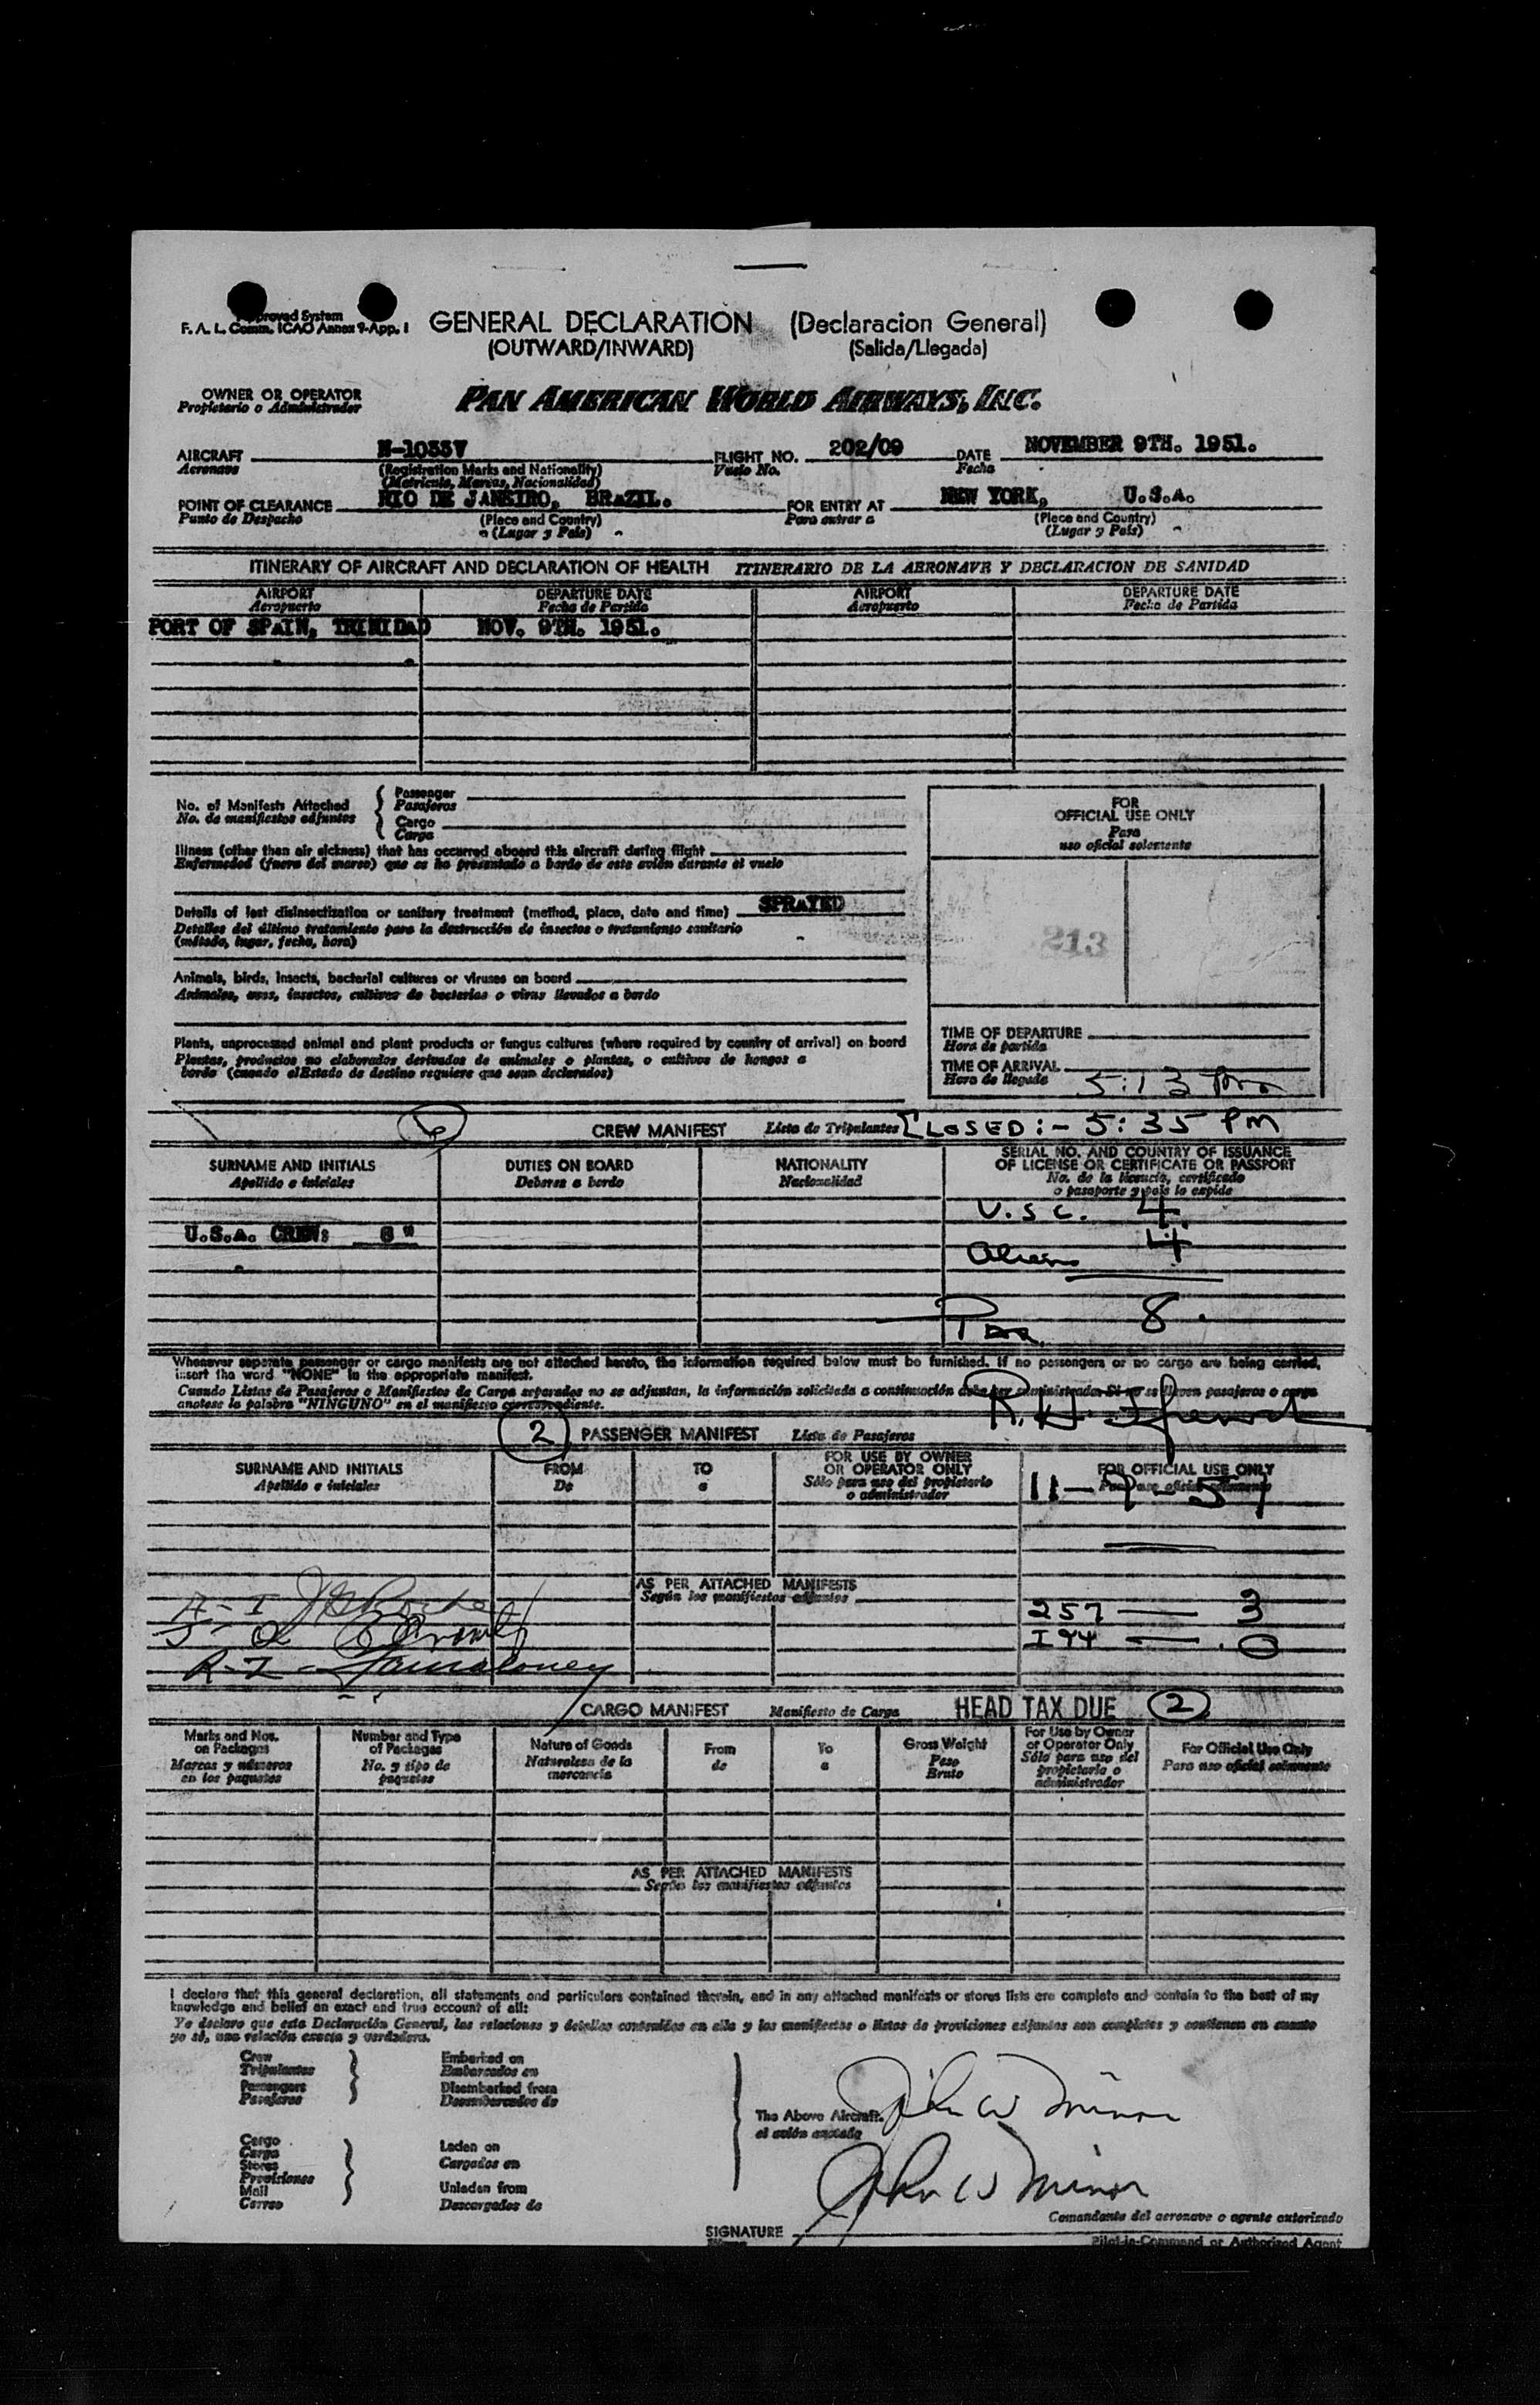 Approved System
F. A. L. Comm. ICAO Annex 9-App. I
GENERAL DECLARATION (Declaracion General)
(OUTWARD/INWARD) (Salida/Llegada)
OWNER OR OPERATOR
Propietario o Administrador
PAN AMERICAN WORLD AIRWAYS, INC.
AIRCRAFT N-1033V FLIGHT NO. 202/09 DATE NOVEMBER 9TH. 1951.
Aeronave (Registration Marks and Nationality) Vuelo No. Fecha
(Matricula, Marcas, Nacionalidad)
POINT OF CLEARANCE RIO DE JANEIRO, BRAZIL. FOR ENTRY AT NEW YORK, U.S.A.
Punto de Despacho (Place and Country) Para entrar a (Place and Country)
(Lugar y País) (Lugar y País)
ITINERARY OF AIRCRAFT AND DECLARATION OF HEALTH ITINERARIO DE LA AERONAVE Y DECLARACION DE SANIDAD
AIRPORT DEPARTURE DATE AIRPORT DEPARTURE DATE
Aeropuerto Fecha de Partida Aeropuerto Fecha de Partida
PORT OF SPAIN, TRINIDAD NOV. 9TH. 1951.
No. of Manifests Attached Passenger
No. de manifiestos adjuntos Pasajeros
Cargo
Carga
Illness (other than air sickness) that has occurred aboard this aircraft during flight
Enfermedad (fuera del mareo) que se ha presentado a bordo de este avión durante el vuelo
Details of last disinsectization or sanitary treatment (method, place, date and time) SPRAYED
Detalles del último tratamiento para la destrucción de insectos o tratamiento sanitario
(método, lugar, fecha, hora)
Animals, birds, insects, bacterial cultures or viruses on board
Animales, aves, insectos, cultivos de bacterias o virus llevados a bordo
Plants, unprocessed animal and plant products or fungus cultures (where required by country of arrival) on board
Plantas, productos no elaborados derivados de animales o plantas, o cultivos de hongos a
bordo (cuando el Estado de destino requiere que sean declarados)
FOR
OFFICIAL USE ONLY
Para
uso oficial solamente
213
TIME OF DEPARTURE
Hora de partida
TIME OF ARRIVAL
Hora de llegada 5:13 Pm
6 CREW MANIFEST Lista de Tripulantes CLOSED:- 5:35 PM
SURNAME AND INITIALS DUTIES ON BOARD NATIONALITY SERIAL NO. AND COUNTRY OF ISSUANCE
OF LICENSE OR CERTIFICATE OR PASSPORT
Apellido e iniciales Deberes a bordo Nacionalidad No. de la licencia, certificado
o pasaporte y país lo expide
U.S.C. 4.
U.S.A. CREW: 6"
Aliens 4
Pax 8.
Whenever separate passenger or cargo manifests are not attached hereto, the information required below must be furnished. If no passengers or no cargo are being carried,
insert the word "NONE" in the appropriate manifest.
Cuando Listas de Pasajeros o Manifiestos de Carga separados no se adjuntan, la información solicitada a continuación debe ser suministrada. Si no se lleven pasajeros o carga
anotese la palabra "NINGUNO" en el manifiesto correspondiente.
2 PASSENGER MANIFEST Lista de Pasajeros
SURNAME AND INITIALS FROM TO FOR USE BY OWNER
OR OPERATOR ONLY FOR OFFICIAL USE ONLY
Apellido e iniciales De a Sólo para uso del propietario
o administrador Para uso oficial solamente
11-9-51
AS PER ATTACHED MANIFESTS
Según los manifiestos adjuntos
257 — 3
I 94 — 0
CARGO MANIFEST Manifiesto de Carga HEAD TAX DUE 2
Marks and Nos.
on Packages
Marcas y números
en los paquetes
Number and Type
of Packages
No. y tipo de
paquetes
Nature of Goods
Naturaleza de la
mercancía
From
de
To
a
Gross Weight
Peso
Bruto
For Use by Owner
or Operator Only
Sólo para uso del
propietario o
administrador
For Official Use Only
Para uso oficial solamente
AS PER ATTACHED MANIFESTS
Según los manifiestos adjuntos
I declare that this general declaration, all statements and particulars contained therein, and in any attached manifests or stores lists are complete and contain to the best of my
knowledge and belief an exact and true account of all:
Yo declaro que esta Declaración General, las relaciones y detalles contenidos en ella y los manifiestos o listas de provisiones adjuntos son completos y contienen en cuanto
yo sé, una relación exacta y verdadera.
Crew Embarked on
Tripulantes Embarcados en
Passengers Disembarked from
Pasajeros Desembarcados de
The Above Aircraft.
el avión anotado
John W Minor
Cargo
Carga Laden on
Stores Cargados en
Provisiones
Mail Unladen from
Correo Descargados de
John W Minor
Comandante del aeronave o agente autorizado
SIGNATURE
Pilot-in-Command or Authorized Agent